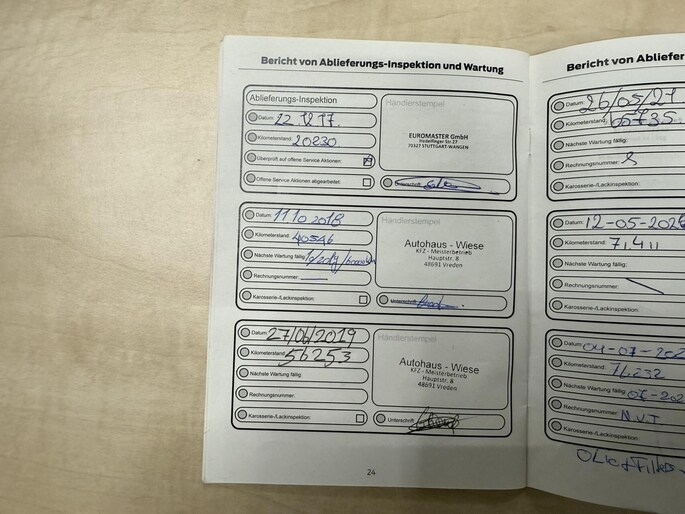 Bericht von Ablieferungs-Inspektion und Wartung
Ablieferungs-Inspektion
Datum: 22 12 17
Kilometerstand: 20230
Überprüft auf offene Service Aktionen:
Offene Service Aktionen abgearbeitet:
Händlerstempel
EUROMASTER GmbH
Hedelfinger Str 27
70327 STUTTGART-WANGEN
Unterschrift:
Datum: 11 10 2018
Kilometerstand: 40546
Nächste Wartung fällig:
Rechnungsnummer:
Karosserie-/Lackinspektion:
Händlerstempel
Autohaus - Wiese
KFZ - Meisterbetrieb
Hauptstr. 8
48691 Vreden
Unterschrift:
Datum: 27/06/2019
Kilometerstand: 56253
Nächste Wartung fällig:
Rechnungsnummer:
Karosserie-/Lackinspektion:
Händlerstempel
Autohaus - Wiese
KFZ - Meisterbetrieb
Hauptstr. 8
48691 Vreden
Unterschrift:
24
Bericht von Ablief
Datum: 26/05/21
Kilometerstand: 65735
Nächste Wartung fällig:
Rechnungsnummer:
Karosserie-/Lackinspektion:
Datum: 12-05-202
Kilometerstand: 71,411
Nächste Wartung fällig:
Rechnungsnummer:
Karosserie-/Lackinspektion:
Datum: 04-07-202
Kilometerstand: 74232
Nächste Wartung fällig: 06-202
Rechnungsnummer: N.V.T.
Karosserie-/Lackinspektion: